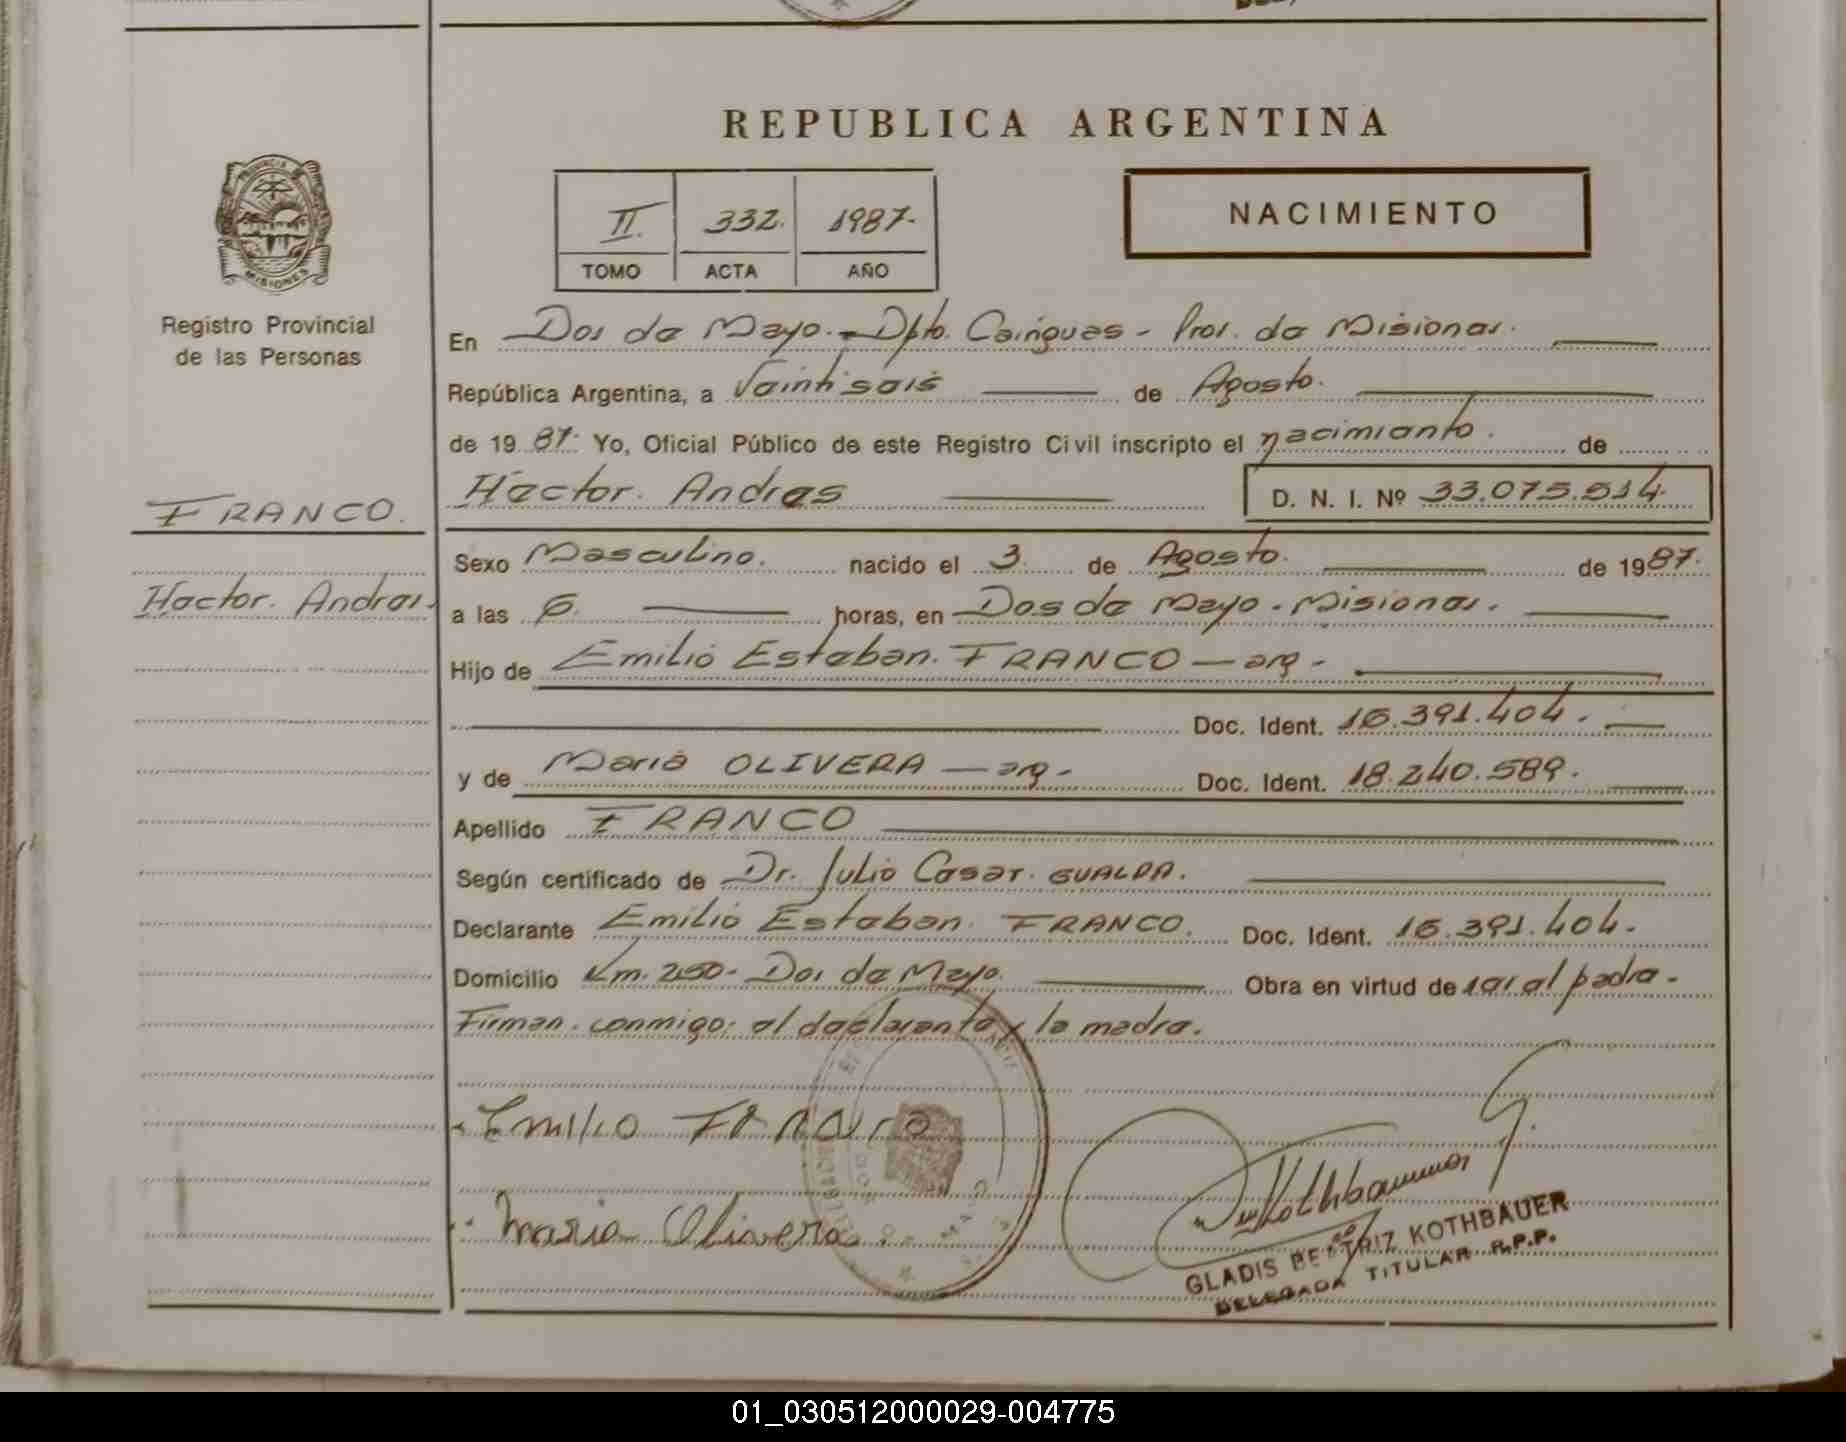 REPUBLICA ARGENTINA
PROVINCIA DE
MISIONES
Registro Provincial
de las Personas
II. 332. 1987.
TOMO ACTA AÑO
NACIMIENTO
En Dos de Mayo.- Dpto. Cainguas - Prov. de Misiones.
República Argentina, a Veintiseis de Agosto.
de 1987. Yo, Oficial Público de este Registro Civil inscripto el nacimiento. de
FRANCO.
Hector. Andres
D. N. I. Nº 33.075.514.
Sexo Masculino. nacido el 3 de Agosto. de 1987.
Hector. Andres.
a las 6. horas, en Dos de Mayo. Misiones.
Hijo de Emilio Esteban. FRANCO — arg -
Doc. Ident. 16.391.404.
y de Maria OLIVERA — arg - Doc. Ident. 18.240.589.
Apellido FRANCO
Según certificado de Dr. Julio Cesar. GUALDA.
Declarante Emilio Esteban. FRANCO. Doc. Ident. 16.391.404.
Domicilio Km. 250- Dos de Mayo. Obra en virtud de ser el padre.
Firman. conmigo: el declarante y la madre.
Emilio FRANCO
Maria Olivera
GLADIS BEATRIZ KOTHBAUER
DELEGADA TITULAR R.P.P.
01_030512000029-004775